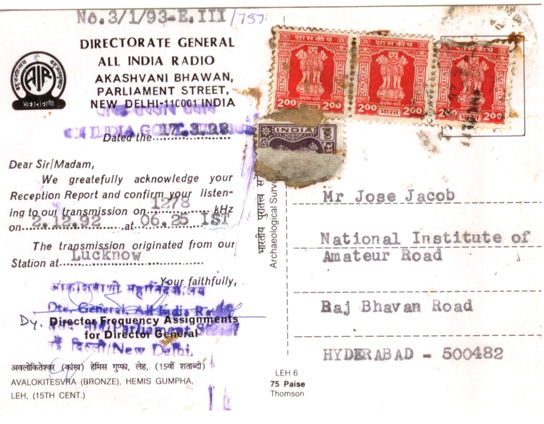 No.3/1/93-E.III/737
DIRECTORATE GENERAL
ALL INDIA RADIO
AKASHVANI BHAWAN,
PARLIAMENT STREET,
NEW DELHI-110001 INDIA
AIR
ON INDIA GOVT. SERVICE
Dated the
Dear Sir/Madam,
We greatefully acknowledge your
Reception Report and confirm your listen-
ing to our transmission on 1278 kHz
on 26.12.92 at 06.25 IST
The transmission originated from our
Station at Lucknow
Your faithfully,
Dte. General, All India Radio
Dy. Director Frequency Assignments
Parliament
for Director General
New Delhi.
अवलोकितेश्वर (कांस्य) हेमिस गुम्फा, लेह, (15वीं शताब्दी)
AVALOKITESVRA (BRONZE), HEMIS GUMPHA,
LEH, (15TH CENT.)
भारतीय पुरातत्व
Archaeological Surve
LEH 6
75 Paise
Thomson
शासकीय
200 भारत 200
शासकीय
200 भारत 200
200 200
INDIA
Mr Jose Jacob
National Institute of
Amateur Road
Raj Bhavan Road
HYDERABAD - 500482